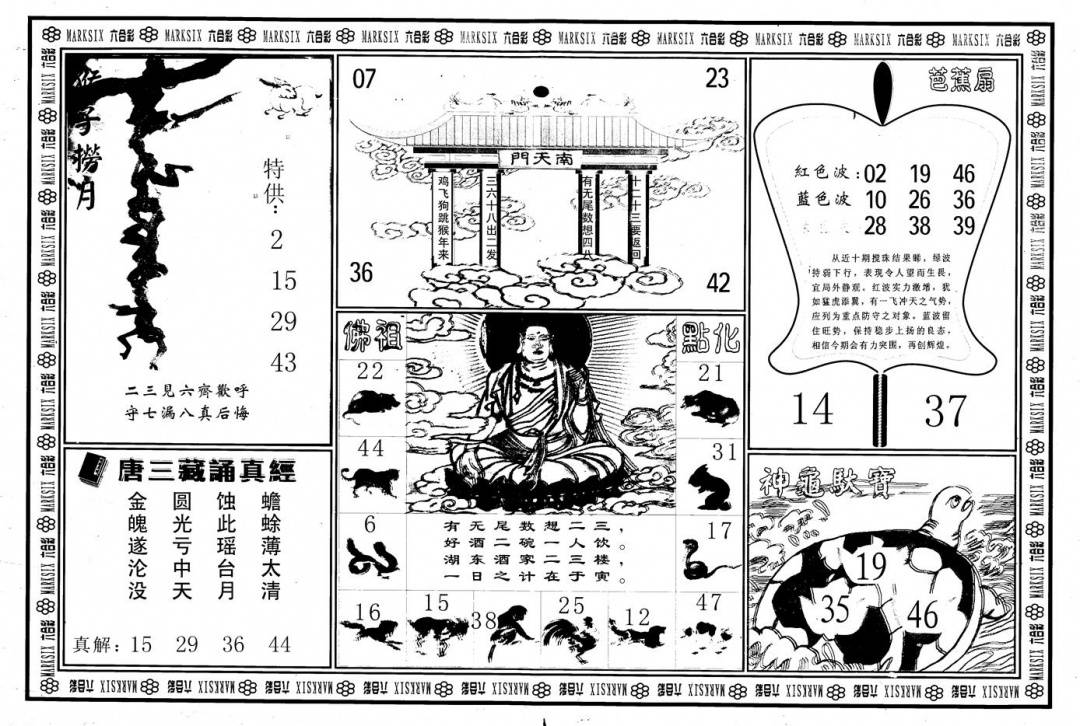 MARKSIX 六合彩 MARKSIX 六合彩 MARKSIX 六合彩 MARKSIX 六合彩 MARKSIX 六合彩 MARKSIX 六合彩 MARKSIX 六合彩 MARKSIX 六合彩 MARKSIX 六合彩 MARKSIX 六合彩
猴子撈月
特供：
2
15
29
43
二三見六齊歡呼
守七漏八真后悔
唐三藏誦真經
蟾蜍薄太清
蚀此瑶台月
圆光亏中天
金魄遂沦没
真解：15 29 36 44
07
23
南天門
鸡飞狗跳猴年来
三六十八出二发
有无尾数想四八
十二十三要返回
36
42
佛祖
點化
22
21
44
31
6
17
有无尾数想二三，
好酒二碗一人饮。
湖东酒家三三楼，
一日之计二在于寅。
16
15
38
25
12
47
芭蕉扇
紅色波：02 19 46
藍色波 10 26 36
28 38 39
从近十期搅珠结果睇，绿波
特弱下行，表现令人望而生畏，
宜局外静观。红波实力激增，犹
如猛虎添翼，有一飞冲天之气势，
应列为重点防守之对象。蓝波留
住旺势，保持稳步上扬的良态，
相信今期会有力突围，再创辉煌。
14
37
神龜馱寶
19
35
46